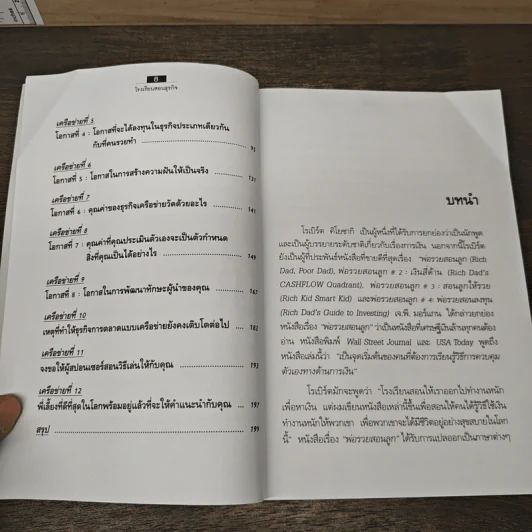 8
โรงเรียนสอนธุรกิจ
เครือข่ายที่ 5
โอกาสที่ 4 : โอกาสที่จะได้ลงทุนในธุรกิจประเภทเดียวกัน
กับที่คนรวยทำ
เครือข่ายที่ 6
โอกาสที่ 5 : โอกาสในการสร้างความฝันให้เป็นจริง
เครือข่ายที่ 7
โอกาสที่ 6 : คุณค่าของธุรกิจเครือข่ายวัดด้วยอะไร
เครือข่ายที่ 8
โอกาสที่ 7 : คุณค่าที่คุณประเมินตัวเองจะเป็นตัวกำหนด
สิ่งที่คุณเป็นได้อย่างไร 149
เครือข่ายที่ 9
โอกาสที่ 8 : โอกาสในการพัฒนาทักษะผู้นำของคุณ
เครือข่ายที่ 10
เหตุที่ทำให้ธุรกิจการตลาดแบบเครือข่ายยังคงเติบโตต่อไป
เครือข่ายที่ 11
จงขอให้ผู้สปอนเซอร์สอนวิธีเล่นให้กับคุณ 193
เครือข่ายที่ 12
พี่เลี้ยงที่ดีที่สุดในโลกพร้อมอยู่แล้วที่จะให้คำแนะนำกับคุณ 197
สรุป 199
บทนำ
โรเบิร์ต คิโยซากิ เป็นผู้หนึ่งที่ได้รับการยกย่องว่าเป็นนักพูด
และเป็นผู้บรรยายระดับชาติเกี่ยวกับเรื่องการเงิน นอกจากนี้โรเบิร์ต
ยังเป็นผู้ที่ประพันธ์หนังสือที่ขายดีที่สุดเรื่อง "พ่อรวยสอนลูก (Rich
Dad, Poor Dad), พ่อรวยสอนลูก # 2 : เงินสี่ด้าน (Rich Dad's
CASHFLOW Quadrant), พ่อรวยสอนลูก # 3 : สอนลูกให้รวย
(Rich Kid Smart Kid) และพ่อรวยสอนลูก # 4: พ่อรวยสอนลงทุน
(Rich Dad's Guide to Investing) เจ.พี. มอร์แกน ได้กล่าวยกย่อง
หนังสือเรื่อง "พ่อรวยสอนลูก" ว่าเป็นหนังสือที่เศรษฐีเงินล้านทุกคนต้อง
อ่าน หนังสือพิมพ์ Wall Street Journal และ USA Today พูดถึง
หนังสือเล่มนี้ว่า "เป็นจุดเริ่มต้นของคนที่ต้องการเรียนรู้วิธีการควบคุม
ตัวเองทางด้านการเงิน"
โรเบิร์ตมักจะพูดว่า "โรงเรียนสอนให้เราออกไปทำงานหนัก
เพื่อหาเงิน แต่ผมเขียนหนังสือเหล่านี้ขึ้นเพื่อสอนให้คนได้รู้วิธีใช้เงิน
ทำงานหนักให้พวกเขา เพื่อพวกเขาจะได้มีชีวิตอยู่อย่างสุขสบายในโลก
นี้" หนังสือเรื่อง "พ่อรวยสอนลูก" ได้รับการแปลออกเป็นภาษาต่างๆ